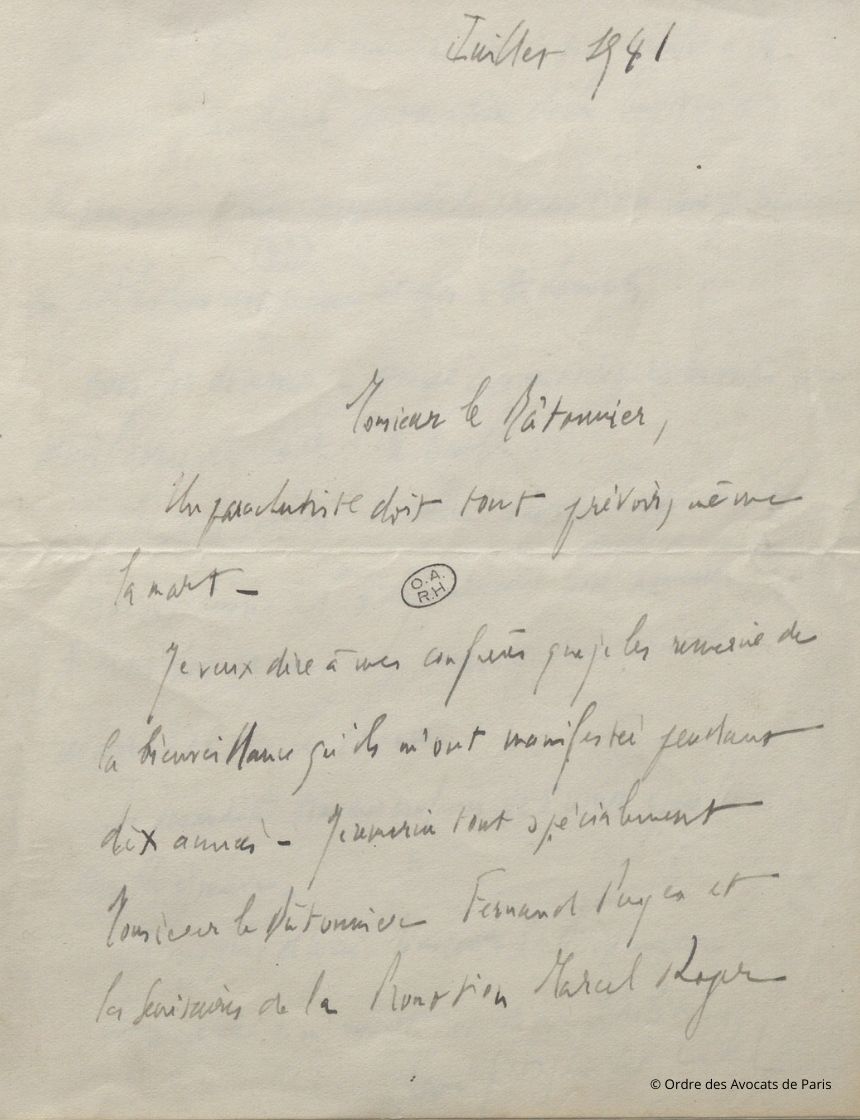 Juillet 1941
Monsieur le Bâtonnier,
Un parachutiste doit tout prévoir, même
la mort –
O.A.
R.H.
Je veux dire à mes confrères que je les remercie de
la bienveillance qu'ils m'ont manifestée pendant
dix années – Je remercie tout spécialement
Monsieur le Bâtonnier Fernand Payen et
les Secrétaires de la Promotion Marcel Roger
© Ordre des Avocats de Paris